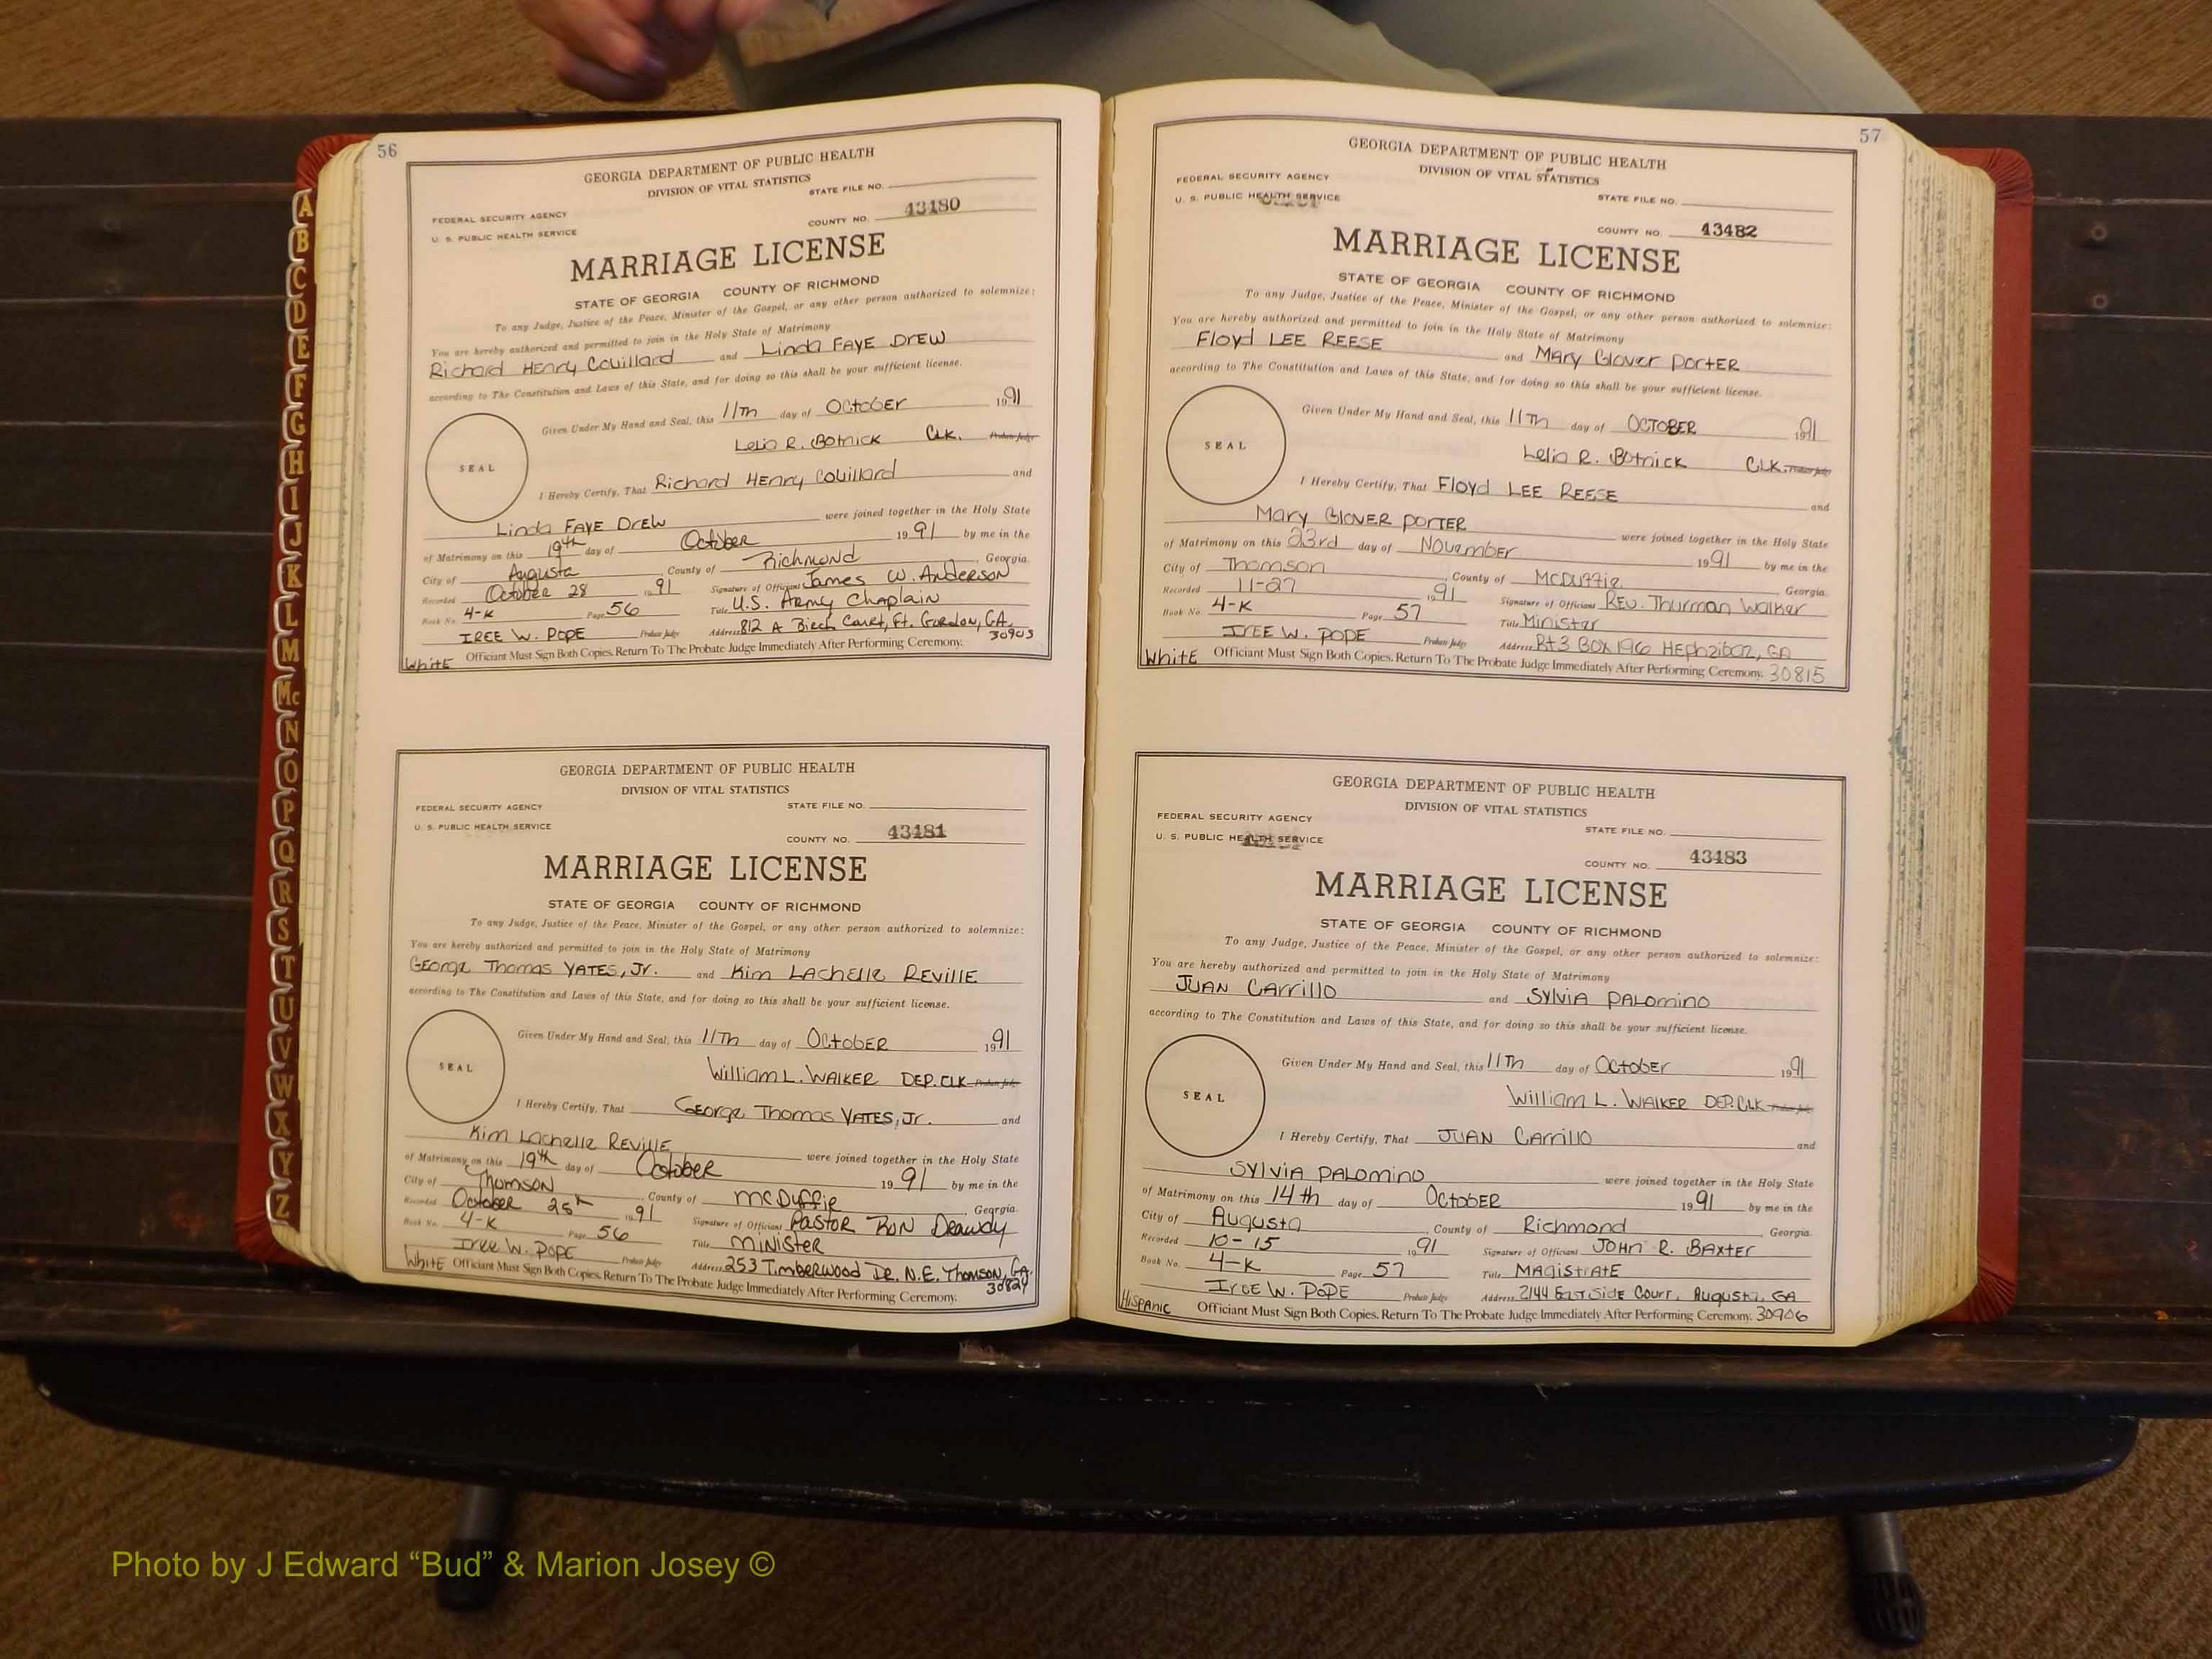 56
GEORGIA DEPARTMENT OF PUBLIC HEALTH
DIVISION OF VITAL STATISTICS
STATE FILE NO.
FEDERAL SECURITY AGENCY
U. S. PUBLIC HEALTH SERVICE
COUNTY NO. 43480
MARRIAGE LICENSE
STATE OF GEORGIA COUNTY OF RICHMOND
To any Judge, Justice of the Peace, Minister of the Gospel, or any other person authorized to solemnize:
You are hereby authorized and permitted to join in the Holy State of Matrimony
Richard Henry Couillard and Linda FAYE DREW
according to The Constitution and Laws of this State, and for doing so this shall be your sufficient license.
Given Under My Hand and Seal, this 11Th day of October 1991
Lelia R. Botnick CLK. Probate Judge
SEAL
I Hereby Certify, That Richard Henry Couillard and
Linda FAYE DREW were joined together in the Holy State
of Matrimony on this 19th day of October 1991 by me in the
City of Augusta County of Richmond, Georgia.
Recorded October 28 1991 Signature of Officiant James W. Anderson
Book No. 4-K Page 56 Title U.S. Army Chaplain
IREE W. POPE Probate Judge Address 812 A Birch Court, Ft. Gordon, GA. 30905
White Officiant Must Sign Both Copies. Return To The Probate Judge Immediately After Performing Ceremony.
GEORGIA DEPARTMENT OF PUBLIC HEALTH
DIVISION OF VITAL STATISTICS
FEDERAL SECURITY AGENCY STATE FILE NO.
U. S. PUBLIC HEALTH SERVICE
COUNTY NO. 43481
MARRIAGE LICENSE
STATE OF GEORGIA COUNTY OF RICHMOND
To any Judge, Justice of the Peace, Minister of the Gospel, or any other person authorized to solemnize:
You are hereby authorized and permitted to join in the Holy State of Matrimony
George Thomas YATES, Jr. and Kim LAChelle REVILLE
according to The Constitution and Laws of this State, and for doing so this shall be your sufficient license.
Given Under My Hand and Seal, this 11Th day of OCTOBER 1991
William L. WALKER DEP. CLK Probate Judge
SEAL
I Hereby Certify, That George Thomas YATES, Jr. and
Kim Lachelle REVILLE were joined together in the Holy State
of Matrimony on this 19th day of October 1991 by me in the
City of Thomson County of McDuffie, Georgia.
Recorded October 25th 1991 Signature of Officiant Pastor Ron Deawdy
Book No. 4-K Page 56 Title Minister
Iree W. POPE Probate Judge Address 253 Timberwood Dr. N.E. Thomson, GA. 30824
White Officiant Must Sign Both Copies. Return To The Probate Judge Immediately After Performing Ceremony.
57
GEORGIA DEPARTMENT OF PUBLIC HEALTH
DIVISION OF VITAL STATISTICS
FEDERAL SECURITY AGENCY
U. S. PUBLIC HEALTH SERVICE STATE FILE NO.
COUNTY NO. 43482
MARRIAGE LICENSE
STATE OF GEORGIA COUNTY OF RICHMOND
To any Judge, Justice of the Peace, Minister of the Gospel, or any other person authorized to solemnize:
You are hereby authorized and permitted to join in the Holy State of Matrimony
Floyd LEE REESE and Mary Glover PORTER
according to The Constitution and Laws of this State, and for doing so this shall be your sufficient license.
Given Under My Hand and Seal, this 11Th day of OCTOBER 1991
Lelia R. Botnick CLK. Probate Judge
SEAL
I Hereby Certify, That Floyd LEE REESE and
Mary GLOVER PORTER were joined together in the Holy State
of Matrimony on this 23rd day of November 1991 by me in the
City of Thomson County of McDuffie, Georgia.
Recorded 11-27 1991 Signature of Officiant Rev. Thurman Walker
Book No. 4-K Page 57 Title Minister
IREE W. POPE Probate Judge Address Rt 3 BOX 196 Hephzibah, GA
White Officiant Must Sign Both Copies. Return To The Probate Judge Immediately After Performing Ceremony. 30815
GEORGIA DEPARTMENT OF PUBLIC HEALTH
DIVISION OF VITAL STATISTICS
FEDERAL SECURITY AGENCY
U. S. PUBLIC HEALTH SERVICE STATE FILE NO.
COUNTY NO. 43483
MARRIAGE LICENSE
STATE OF GEORGIA COUNTY OF RICHMOND
To any Judge, Justice of the Peace, Minister of the Gospel, or any other person authorized to solemnize:
You are hereby authorized and permitted to join in the Holy State of Matrimony
JUAN Carrillo and Sylvia PALOMINO
according to The Constitution and Laws of this State, and for doing so this shall be your sufficient license.
Given Under My Hand and Seal, this 11Th day of October 1991
William L. WALKER DEP. CLK Probate Judge
SEAL
I Hereby Certify, That JUAN Carrillo and
Sylvia PALOMINO were joined together in the Holy State
of Matrimony on this 14th day of October 1991 by me in the
City of Augusta County of Richmond Georgia.
Recorded 10-15 1991 Signature of Officiant JOHN R. BAXTER
Book No. 4-K Page 57 Title MAGISTRATE
Iree W. POPE Probate Judge Address 2144 EastSide Court, Augusta, GA
Hispanic Officiant Must Sign Both Copies. Return To The Probate Judge Immediately After Performing Ceremony. 30906
A
B
C
D
E
F
G
H
I
J
K
L
M
Mc
N
O
P
Q
R
S
T
U
V
W
X
Y
Z
Photo by J Edward “Bud” & Marion Josey ©